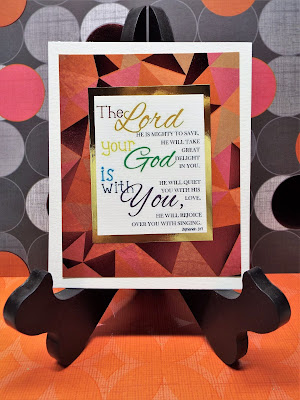 The Lord
HE IS MIGHTY TO SAVE,
your
HE WILL TAKE
GREAT
God
DELIGHT
IN YOU.
is
with
HE WILL QUIET
YOU WITH HIS
You,
LOVE,
HE WILL REJOICE
OVER YOU WITH SINGING.